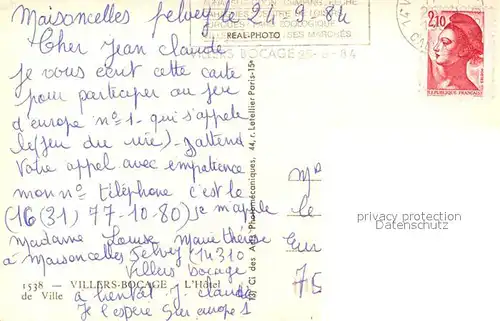 Maisoncelles Pelvey le 24.9.84
Cher Jean Claude
je vous ecrit cette carte
pour participer au jeu
d'europe n°1 - qui s'appele
le (jeu du rire) - J'attend
Votre appel avec empatience
mon n° téléphone c'est le
(16(31) 77-10-80) je m'apele
madame Louise Marie thérèse
à Maisoncelles Pelvey (14310
Villers bocage
à bientot J. Claude
Je l'espère sur europe 1
1538 — VILLERS-BOCAGE — L'Hôtel
de Ville
REAL-PHOTO
SES MARCHÉS
VILLERS BOCAGE 25-9-84
2,10
REPUBLIQUE FRANÇAISE
Photomécaniques, 44, r. Letellier Paris-15e
le
Eur
75
privacy protection
Datenschutz